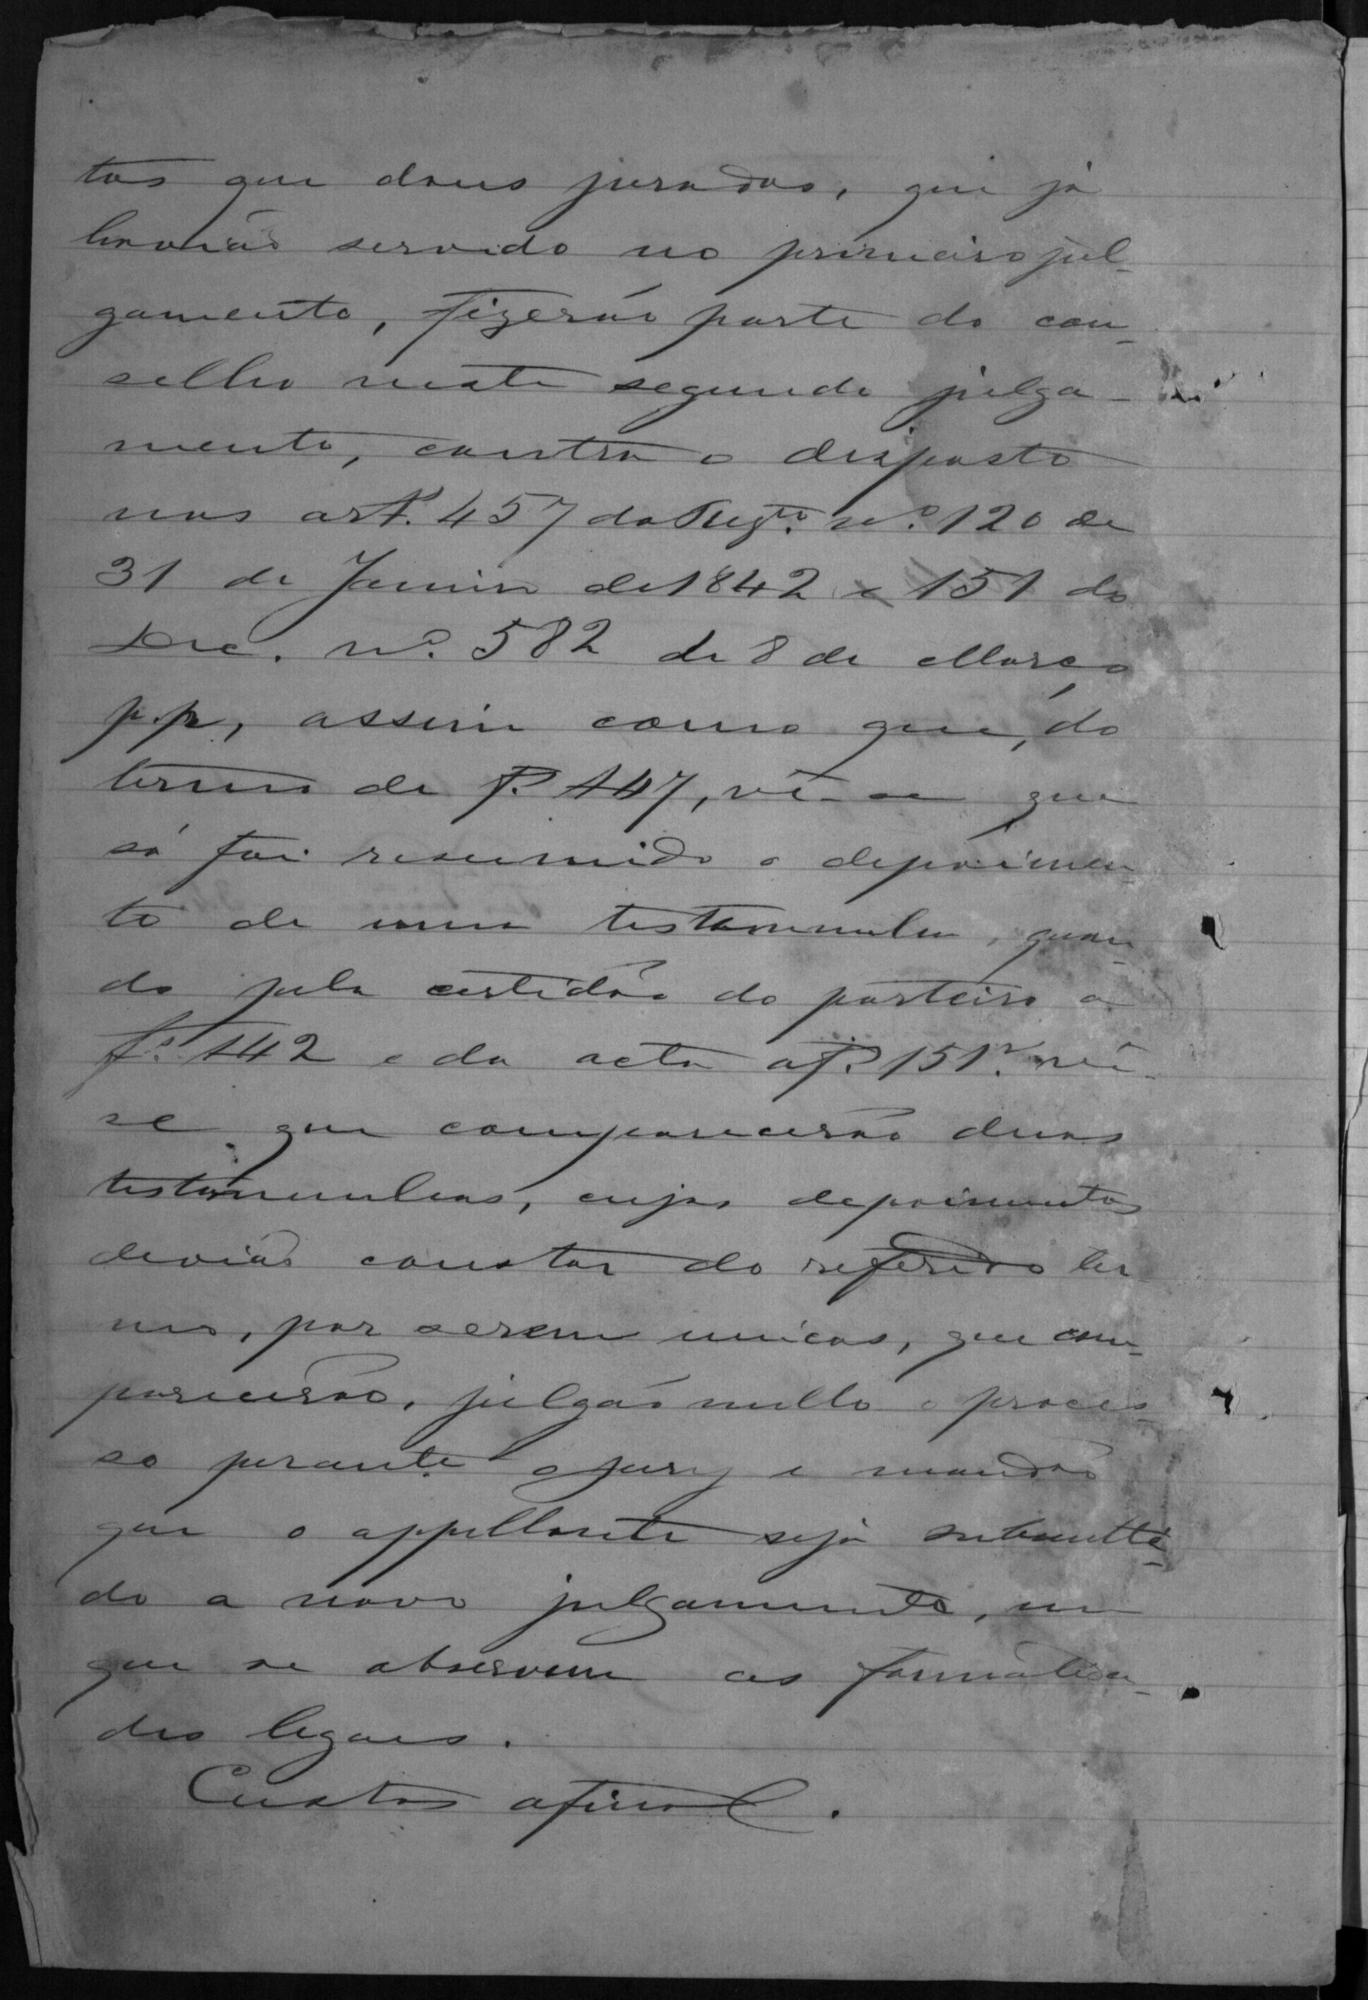 tos que dous jurados, que já
havião servido no primeiro jul-
gamento, fizerão parte do con-
selho neste segundo julga-
mento, contra o disposto
nos art.ˢ 457 do Reg.ᵗᵒ nº. 120 de
31 de Janeiro de 1842 e 151 do
Dec. nº. 582 de 8 de Março
p.p, assim como que, do
termo de f. 147, vê-se que
só foi resumido o depoimen-
to de uma testemunha, quan-
do pela certidão do porteiro a
f. 142 e da acta a f. 151v. vê-
se que comparecerão duas
testemunhas, cujos depoimentos
devião constar do referido ter-
mo, por serem unicas, que com-
parecerão, julgão nullo o proces-
so perante o jury e mandão
que o appellante seja submetti-
do a novo julgamento, em
que se observem as formalida-
des legaes.
Custas afinal.